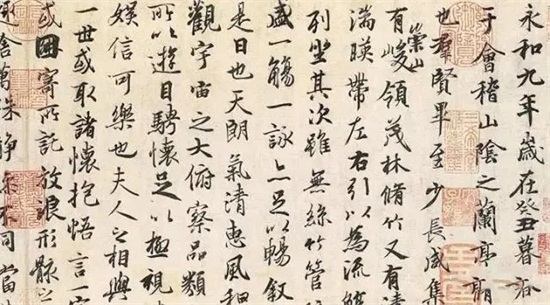 永和九年歲在癸丑暮春
于會稽山陰之蘭亭脩
也羣賢畢至少長咸集
有崇山峻領茂林脩竹又有清
湍暎帶左右引以為流
列坐其次雖無絲竹管弦
盛一觴一詠亦足以暢敘
是日也天朗氣清惠風和
觀宇宙之大俯察品類
所以遊目騁懷足以極視
娛信可樂也夫人之相與
一世或取諸懷抱悟言一室
或因寄所託放浪形骸之
趣舍萬殊靜躁不同當